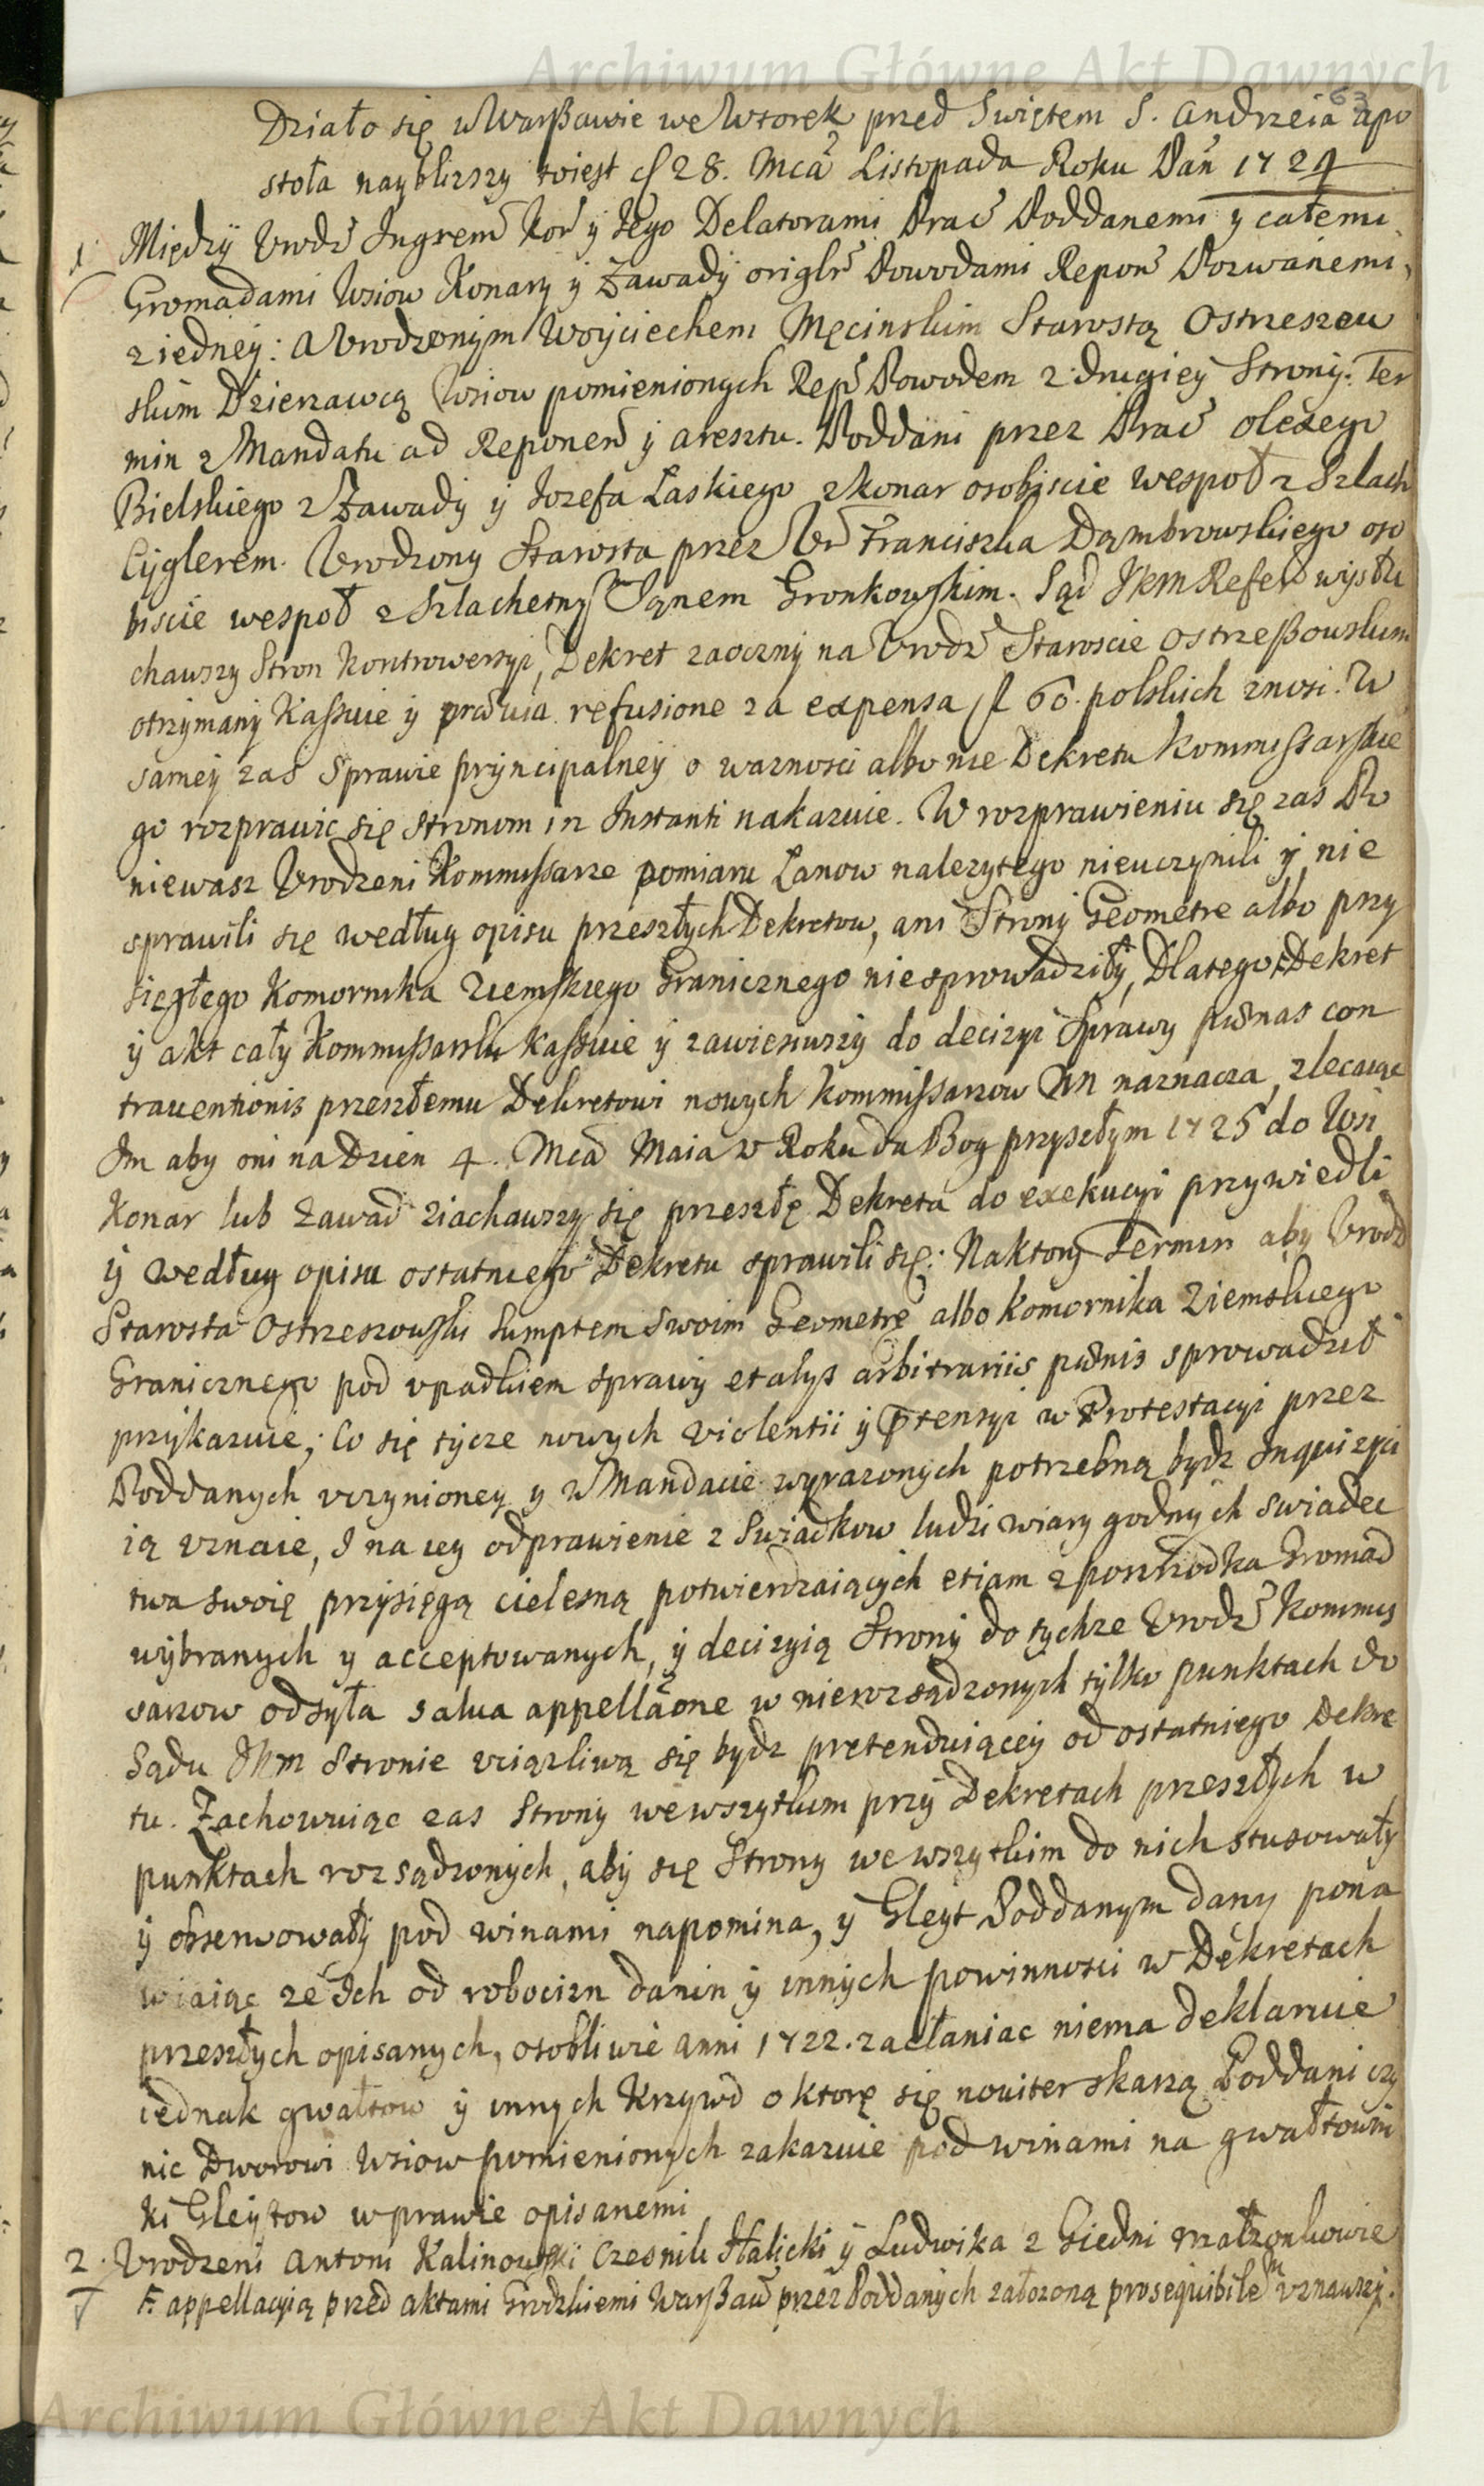 Archiwum Główne Akt Dawnych
63
Działo się w Warßawie we Wtorek przed Swiętem S. Andrzeia apo
stoła nayblizszy to iest d 28. Mca Listopada Roku Pań 1724
1. Między Urodź Jngrem Kor y Jego Delatorami Prac Poddanemi y całemi
Gromadami Wsiow Konary y Zawady origlr Powodami Repoń Pozwanemi,
z iedney: A Urodzonym Woyciechem Męcinskim Starostą Ostrzeszew
skim Dzierzawcą Wsiow pomienionych Rep Powodem z drugiey Strony. Ter
min z Mandatu ad Reponen y aresztu. Poddani przez Prac olexego
Bielskiego z Zawady y Jozefa Laskiego z Konar osobiscie wespoł z Szlach
Cyglerem. Urodzony Starosta przez Ur Franciszka Dąmbrowskiego oso
biscie wespoł z Szlachetny Janem Gronkowskim. Sąd JKM Refer wysłu
chawszy Stron Kontrowersyi, Dekret zaoczny na Urodź Staroscie Ostrzeßowskim
otrzymany Kassuie y prawia refusione za expensa fl 60. polskich znosi. W
samey zas Sprawie pryncipalney o waznosci albo nie Dekretu Kommissarskie
go rozprawic się stronom in Instanti nakazuie. W rozprawieniu się zas Po
niewasz Urodzeni Kommissarze pomiaru Lanow nalezytego nieuczynili y nie
sprawili się według opisu przeszłych Dekretow, ani Strony Geometre albo przy
sięgłego Komornika Ziemskiego Granicznego niesprowadziły, Dlatego Dekret
y akt cały Kommissarski Kassuie y zawiesiwszy do decizyi Sprawy pænas con
trauentionis przeszłemu Dekretowi nowych Kommissarzow NN naznacza, zlecaiąc
Im aby oni na Dzien 4. Mca Maia w Roku da Bog przyszłym 1725 do Wsi
Konar lub Zawad ziachawszy się przeszłę Dekreta do exekucyi przywiedli
y według opisu ostatniego Dekretu sprawili się: Naktory Termin aby Urodź
Starosta Ostrzeszowski sumptem swoim Geometrę albo Komornika Ziemskiego
Granicznego pod upadkiem sprawy et alys arbitrariis pænis sprowadził
przykazuie; Co się tycze nowych violentii y Ptensyi w Protestacyi przez
Poddanych uczynioney y w Mandacie wyrazonych potrzebną bydz Inquizyci
ią uznaie, I na iey odprawienie z Swiadkow ludzi wiary godnych swiadec
twa swoię przysięgą cielesną potwierdzaiących etiam z poszrodka Gromad
wybranych y acceptowanych, y decizyią Strony do tychze Urodź Kommis
sarzow odsyła salua appellaone w nierozsądzonych tylko punktach do
Sądu JKM Stronie uciązliwą się bydz pretenduiącey od ostatniego Dekre
tu. Zachowuiąc zas Strony we wszytkim przy Dekretach przeszłych w
punktach rozsądzonych, aby się Strony we wszytkim do nich stusowały
y obserwowały pod winami napomina, y Gleyt Poddanym dany pona
wiaiąc ze Ich od robocizn danin y innych powinnosci w Dekretach
przeszłych opisanych, osobliwie anni 1722. zasłaniac niema deklaruie
iednak gwałtow y innych Krzywd o ktorę się nouiter skarzą Poddani czy
nic Dworowi Wsiow pomienionych zakazuie pod winami na gwałtowni
ki Gleytow w prawie opisanemi
2. Urodzeni Antoni Kalinowski Czesnik Halicki y Ludwika z Giedni małzonkowie
F. appellacyią przed aktami Grodzkiemi Warßaw przez Poddanych załozoną prosequibilem uznawszy.
Archiwum Główne Akt Dawnych